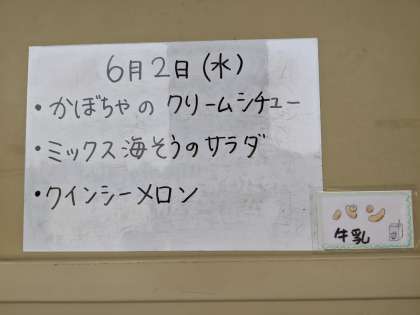 6月2日(水)
・かぼちゃの クリームシチュー
・ミックス海そうのサラダ
・クインシーメロン
パン
牛乳